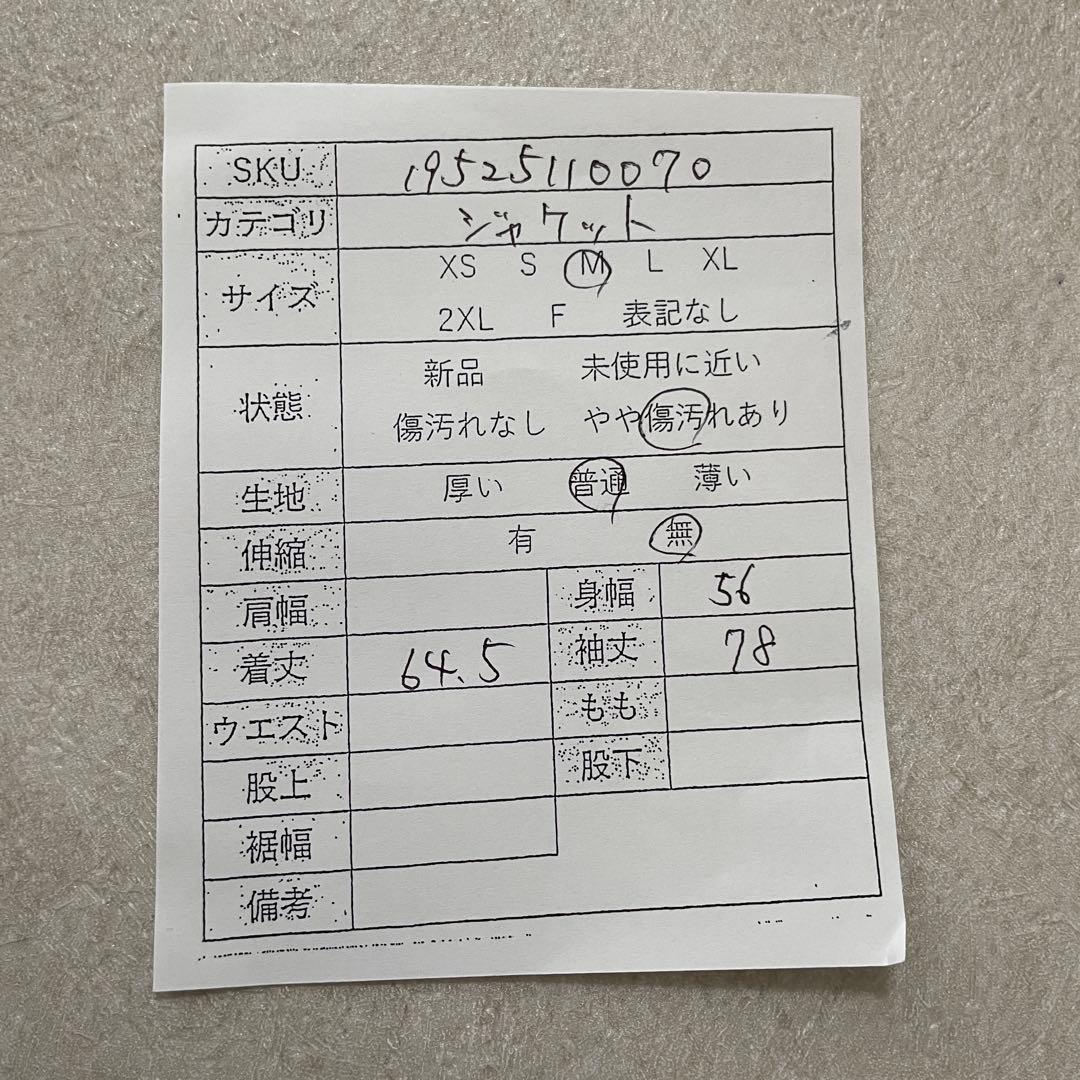 SKU 19525110070
カテゴリ ジャケット
サイズ XS S M L XL
2XL F 表記なし
状態 新品 未使用に近い
傷汚れなし やや傷汚れあり
生地 厚い 普通 薄い
伸縮 有 無
肩幅 身幅 56
着丈 64.5 袖丈 78
ウエスト もも
股上 股下
裾幅
備考